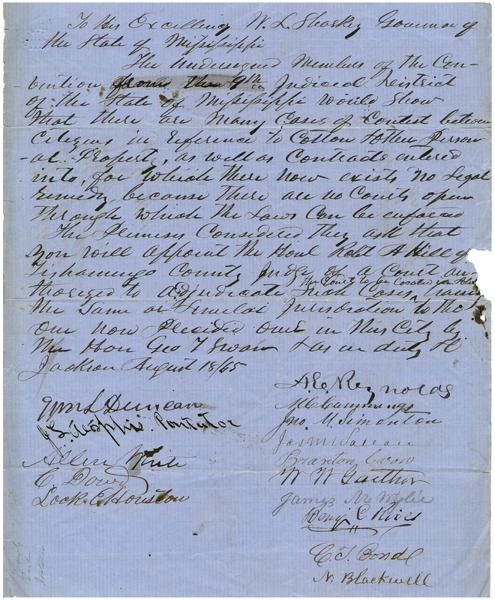 To His Excellency W. L. Sharkey Governor of
the State of Mississippi
The Undersigned Members of the Con-
vention from the 9th Judicial District
of the State of Mississippi would show
that there are many Cases of Contest between
Citizens in reference to Cotton & other Person-
al Property, as well as Contracts entered
into, for which there now exists no Legal
remedy because there are no Courts open
through which the Laws can be enforced
The Premises Considered they ask that
you will appoint the Honl Robt A Hill of
Tishamingo County Judge of a Court au-
thorized to adjudicate such Cases, having
the Same or Similar Jurisdiction to the
One now Presided over in this City by
the Hon Geo T Swann & as in duty &c
Jackson August 18/65
A. E. Reynolds
Wm L Duncan
M C Cummings
Jno. M. Simonton
Allen White
Brandon
W W Gaither
C. Dowd
James M
Lock E Houston
Benj C Rives
C. T. Bond
N. Blackwell